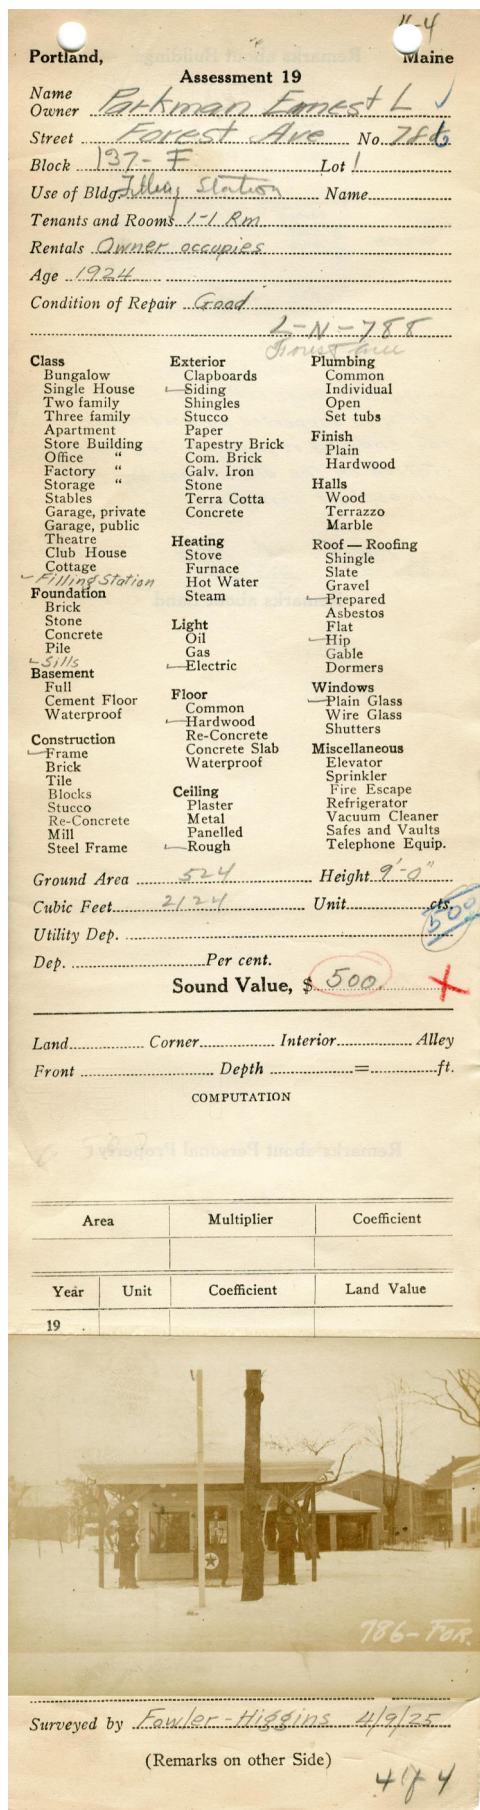 4-4
Portland, Maine
Assessment 19
Name
Owner Parkman Ernest L
Street Forest Ave No. 786
Block 137-F Lot 1
Use of Bldg. Filling Station Name
Tenants and Rooms 1-1 Rm
Rentals Owner occupies
Age 1924
Condition of Repair Good
L-N-788
Forest Ave
Class
Bungalow
Single House
Two family
Three family
Apartment
Store Building
Office "
Factory "
Storage "
Stables
Garage, private
Garage, public
Theatre
Club House
Cottage
Filling Station
Foundation
Brick
Stone
Concrete
Pile
Sills
Basement
Full
Cement Floor
Waterproof
Construction
Frame
Brick
Tile
Blocks
Stucco
Re-Concrete
Mill
Steel Frame
Exterior
Clapboards
Siding
Shingles
Stucco
Paper
Tapestry Brick
Com. Brick
Galv. Iron
Stone
Terra Cotta
Concrete
Heating
Stove
Furnace
Hot Water
Steam
Light
Oil
Gas
Electric
Floor
Common
Hardwood
Re-Concrete
Concrete Slab
Waterproof
Ceiling
Plaster
Metal
Panelled
Rough
Plumbing
Common
Individual
Open
Set tubs
Finish
Plain
Hardwood
Halls
Wood
Terrazzo
Marble
Roof — Roofing
Shingle
Slate
Gravel
Prepared
Asbestos
Flat
Hip
Gable
Dormers
Windows
Plain Glass
Wire Glass
Shutters
Miscellaneous
Elevator
Sprinkler
Fire Escape
Refrigerator
Vacuum Cleaner
Safes and Vaults
Telephone Equip.
Ground Area 524 Height 9'-0"
Cubic Feet 2124 Unit cts.
500
Utility Dep.
Dep. Per cent.
Sound Value, $ 500.
Land Corner Interior Alley
Front Depth = ft.
COMPUTATION
Area Multiplier Coefficient
Year Unit Coefficient Land Value
19
786-FOR.
Surveyed by Fowler-Higgins 4/9/25
(Remarks on other Side)
4 of 4